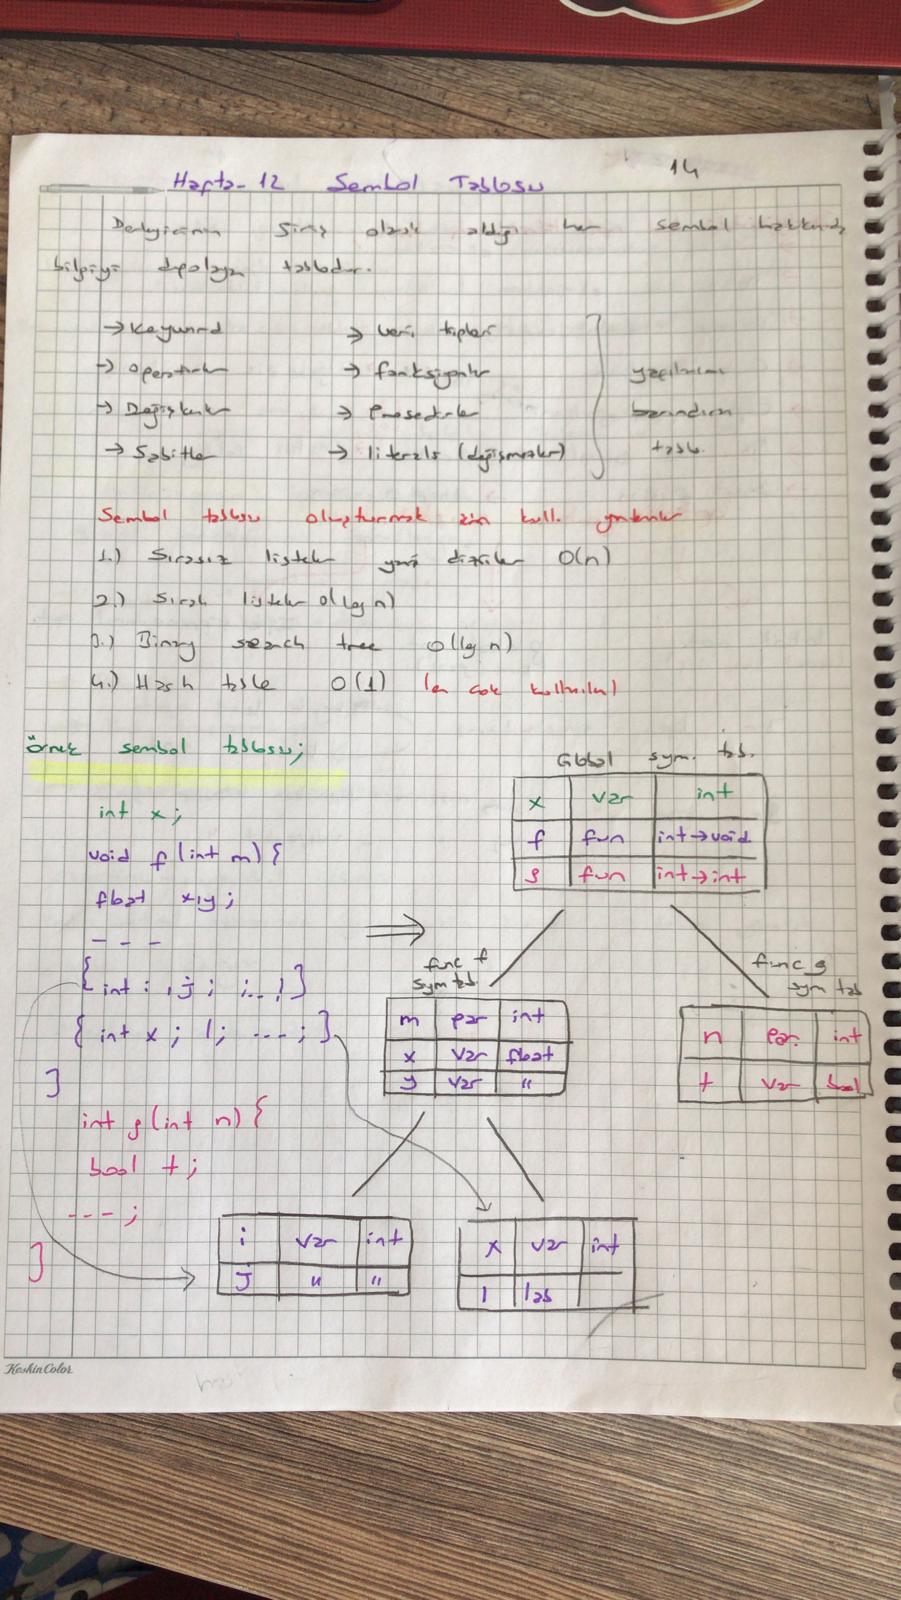 14
Hafta-12 Sembol Tablosu
Derleyicinin giriş olarak aldığı her sembol hakkında
bilgiyi depolayan tablodur.
→ Keyword → veri tipleri
→ operatörler → fonksiyonlar yapılarını
→ Değişkenler → Prosedürler barındıran
→ Sabitler → literals (değişmezler) tablo.
Sembol tablosu oluşturmak için kull. yöntemler
1.) Sırasız listeler yani diziler O(n)
2.) Sıralı listeler O(log n)
3.) Binary search tree O(log n)
4.) Hash table O(1) (en çok kullanılan)
örnek sembol tablosu;
int x;
void f(int m){
float x,y;
- - -
{ int i,j; ;..!}
{ int x; l; ---; }
}
int g(int n){
bool t;
---;
}
Global sym. tab.
x var int
f fun int→void
g fun int→int
func f
sym tab.
m par int
x var float
y var "
func g
sym tab
n par. int
t var bool
i var int
j " "
x var int
l lab
KeskinColor